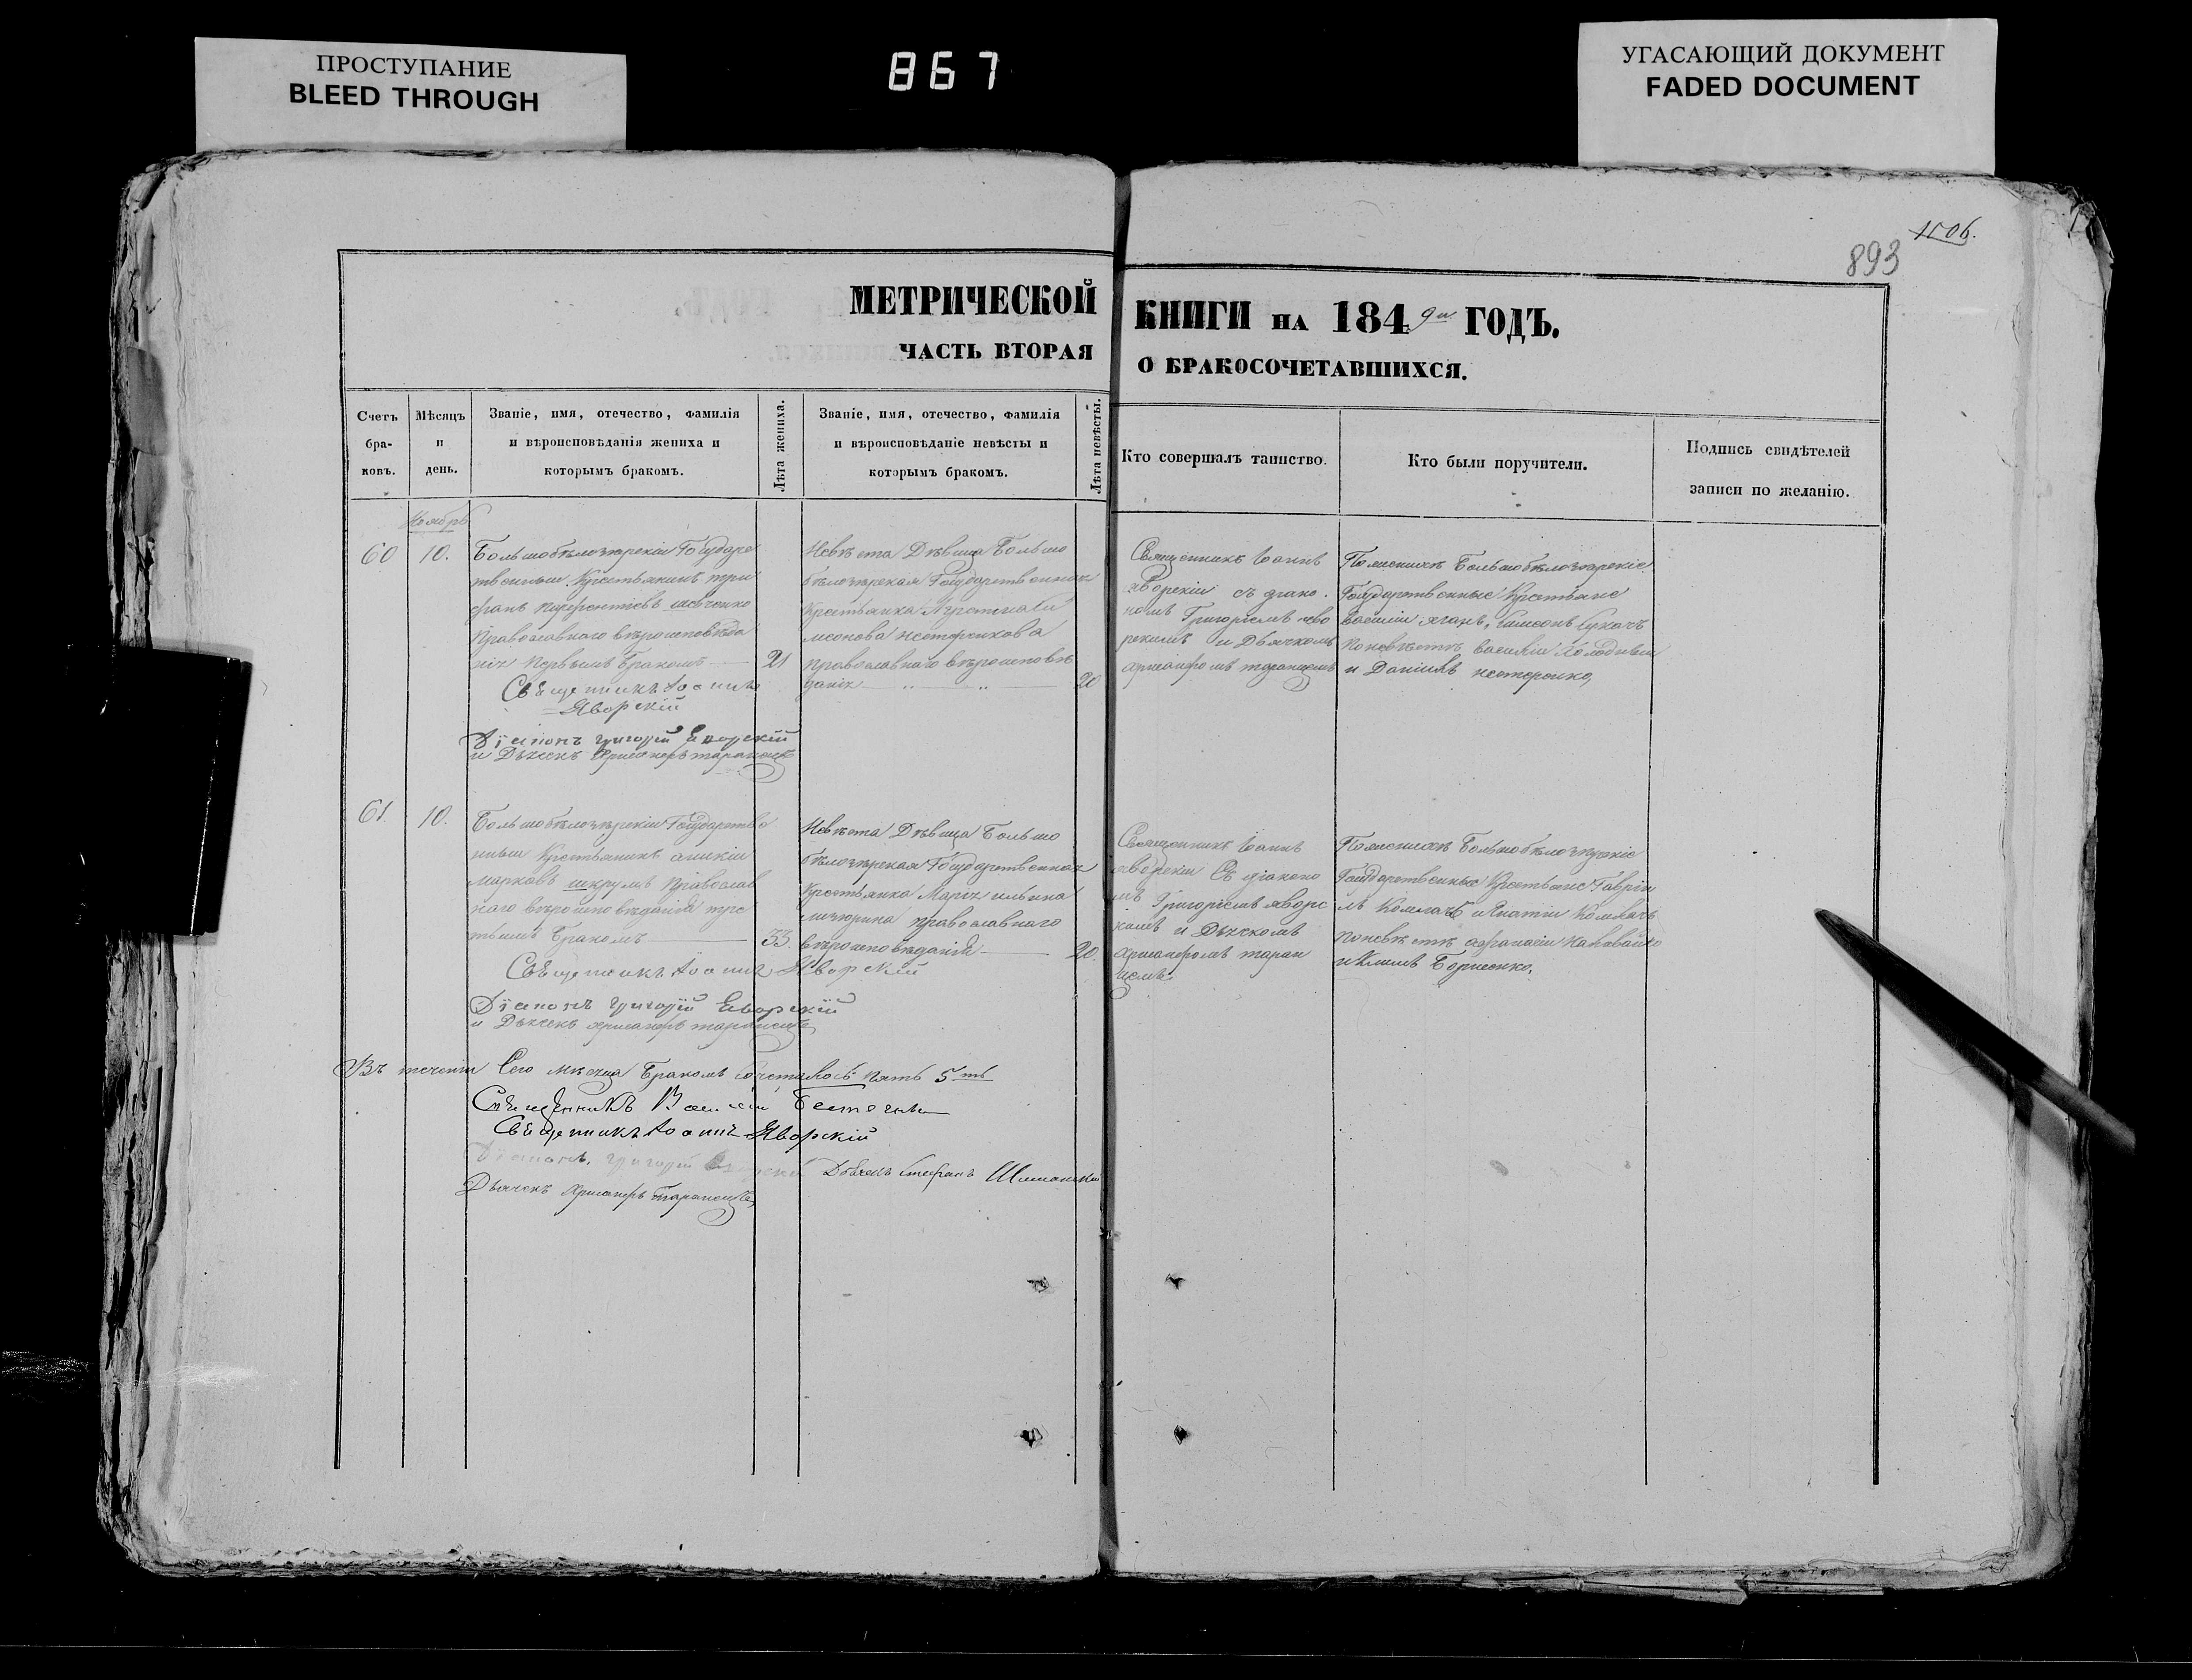 ПРОСТУПАНИЕ
BLEED THROUGH
867
УГАСАЮЩИЙ ДОКУМЕНТ
FADED DOCUMENT
1506.
893
МЕТРИЧЕСКОЙ КНИГИ НА 1849й ГОДЪ.
ЧАСТЬ ВТОРАЯ О БРАКОСОЧЕТАВШИХСЯ.
Счетъ
бра-
ковъ.
Мѣсяцъ
и
день.
Званіе, имя, отечество, фамилія
и вѣроисповѣданія жениха и
которымъ бракомъ.
Лѣта жениха.
Званіе, имя, отечество, фамилія
и вѣроисповѣданіе невѣсты и
которымъ бракомъ.
Лѣта невѣсты.
Кто совершалъ таинство.
Кто были поручители.
Подпись свидѣтелей
записи по желанію.
Ноябрь
60
10.
Большобѣлозѣрскій Государс
твенный Крестьянинъ три
фанъ Парфентіевъ шевченко
Православнаго вѣроисповѣда
нія первымъ бракомъ
21
Священникъ Іоаннъ
Яворскій
Діаконъ григорій Яворскій
и Дьячекъ
Невѣста Дѣвица Большо
бѣлозѣрская Государственная
Крестьянка
нестеренкова
православнаго вѣроисповѣ
данія
20
Священникъ Іоаннъ
яворскій съ діако
номъ Григоріемъ яво
рскимъ и Дьячкомъ
По женихѣ Большобѣлозѣрскіе
Государственные Крестьяне
василій Симеонъ
По невѣстѣ василій Холодный
и Даніилъ нестеренко,
61.
10.
Большобѣлозѣрскій Государстве
нный Крестьянинъ
марковъ шкрумъ Православ
наго вѣроисповѣданія тре
тьимъ бракомъ
33.
Священникъ Іоаннъ Яворскій
Діаконъ григорій Яворскій
и Дьячекъ
Невѣста Дѣвица Большо
бѣлозѣрская Государственная
Крестьянка Марія ильина
православнаго
вѣроисповѣданія
20.
Священникъ Іоаннъ
яворскій Съ діаконо
мъ Григоріемъ яворс
кимъ и Дьячкомъ
По женихѣ Большобѣлозѣрскіе
Государственные Крестьяне Гаврiи
лъ и Игнатій
По невѣстѣ афанасій
и Климъ Борисенко,
Въ теченіи Сего мѣсяца Бракомъ сочеталось пять 5ть
Священникъ
Священникъ Іоаннъ Яворскій
Діаконъ, григорій Дьячекъ стефанъ
Дьячекъ